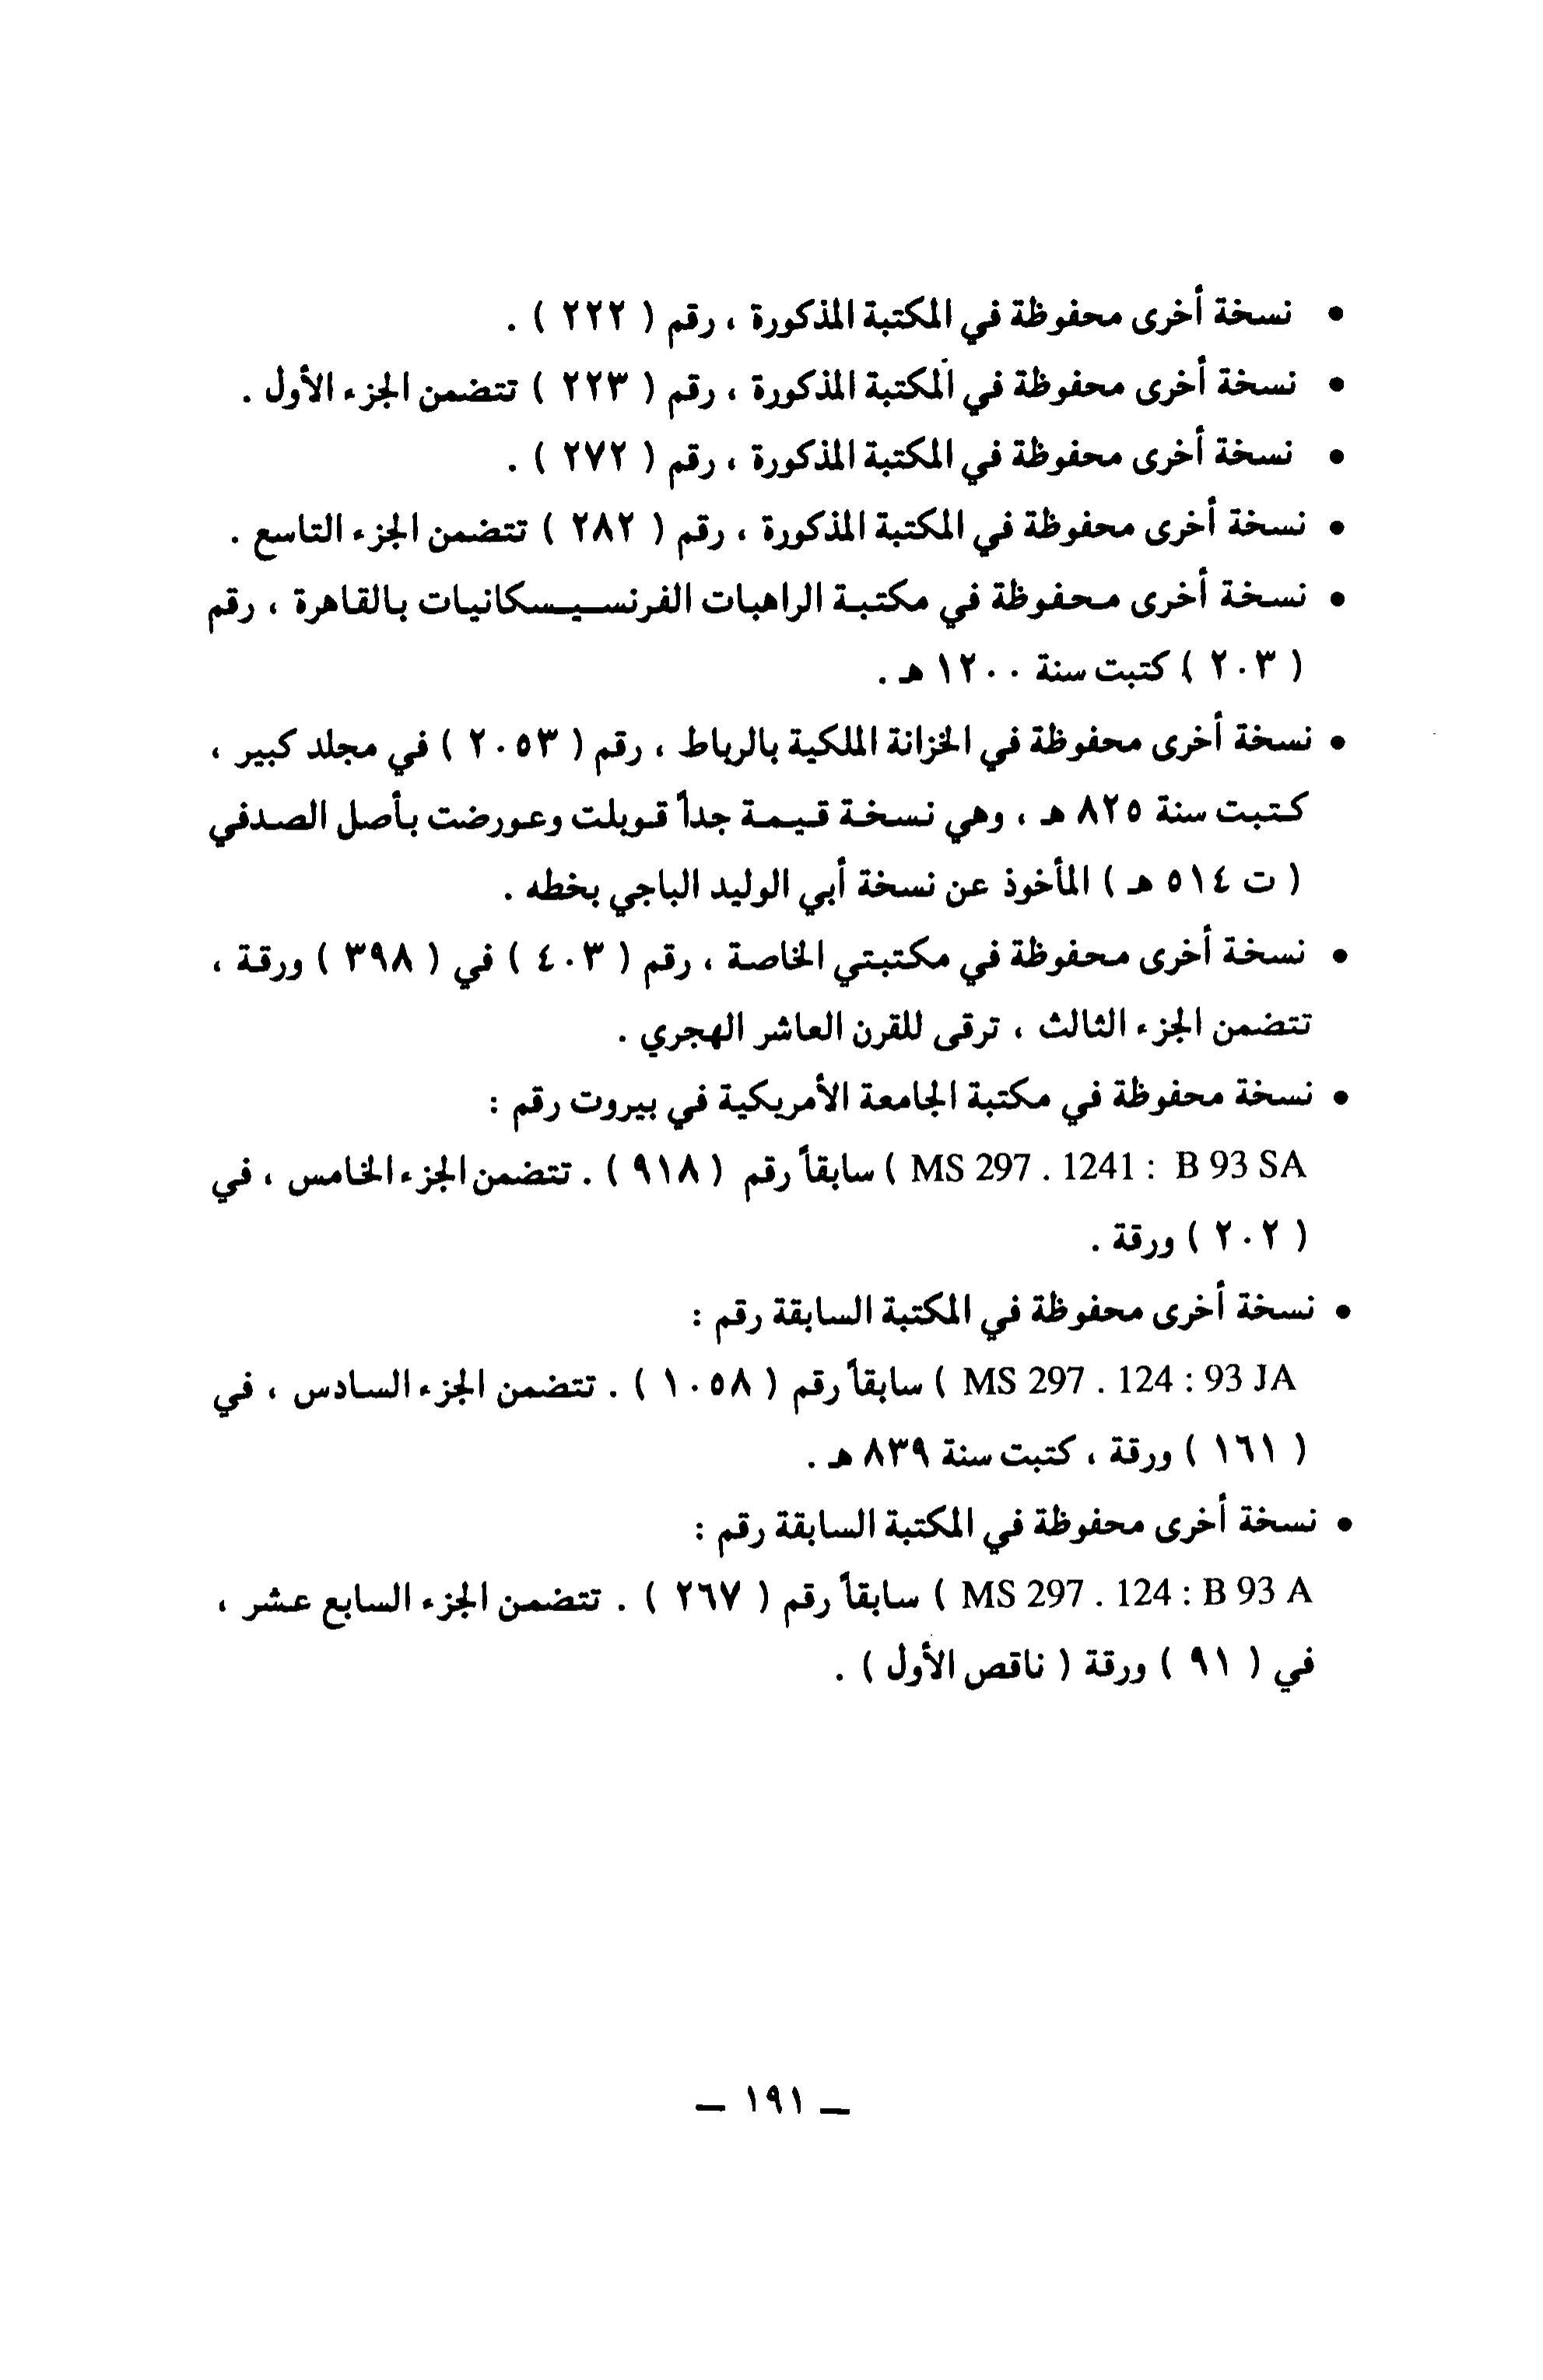 • نسخة أخرى محفوظة في المكتبة المذكورة ، رقم ( ٢٢٢ ) .
• نسخة أخرى محفوظة في المكتبة المذكورة ، رقم ( ٢٢٣ ) تتضمن الجزء الأول .
• نسخة أخرى محفوظة في المكتبة المذكورة ، رقم ( ٢٧٢ ) .
• نسخة أخرى محفوظة في المكتبة المذكورة ، رقم ( ٢٨٢ ) تتضمن الجزء التاسع .
• نسخة أخرى محفوظة في مكتبة الراهبات الفرنسيسكانيات بالقاهرة ، رقم
( ٢٠٣ ) كتبت سنة ١٢٠٠ هـ .
• نسخة أخرى محفوظة في الخزانة الملكية بالرباط ، رقم ( ٢٠٥٣ ) في مجلد كبير ،
كتبت سنة ٨٢٥ هـ ، وهي نسخة قيمة جداً قوبلت وعورضت بأصل الصدفي
( ت ٥١٤ هـ ) المأخوذ عن نسخة أبي الوليد الباجي بخطه .
• نسخة أخرى محفوظة في مكتبتي الخاصة ، رقم ( ٤٠٣ ) في ( ٣٩٨ ) ورقة ،
تتضمن الجزء الثالث ، ترقى للقرن العاشر الهجري .
• نسخة محفوظة في مكتبة الجامعة الأمريكية في بيروت رقم :
MS 297 . 1241 : B 93 SA ) سابقاً رقم ( ٩١٨ ) . تتضمن الجزء الخامس ، في
( ٢٠٢ ) ورقة .
• نسخة أخرى محفوظة في المكتبة السابقة رقم :
MS 297 . 124 : 93 JA ) سابقاً رقم ( ١٠٥٨ ) . تتضمن الجزء السادس ، في
( ١٦١ ) ورقة ، كتبت سنة ٨٣٩ هـ .
• نسخة أخرى محفوظة في المكتبة السابقة رقم :
MS 297 . 124 : B 93 A ) سابقاً رقم ( ٢٦٧ ) . تتضمن الجزء السابع عشر ،
في ( ٩١ ) ورقة ( ناقص الأول ) .
— ١٩١ —